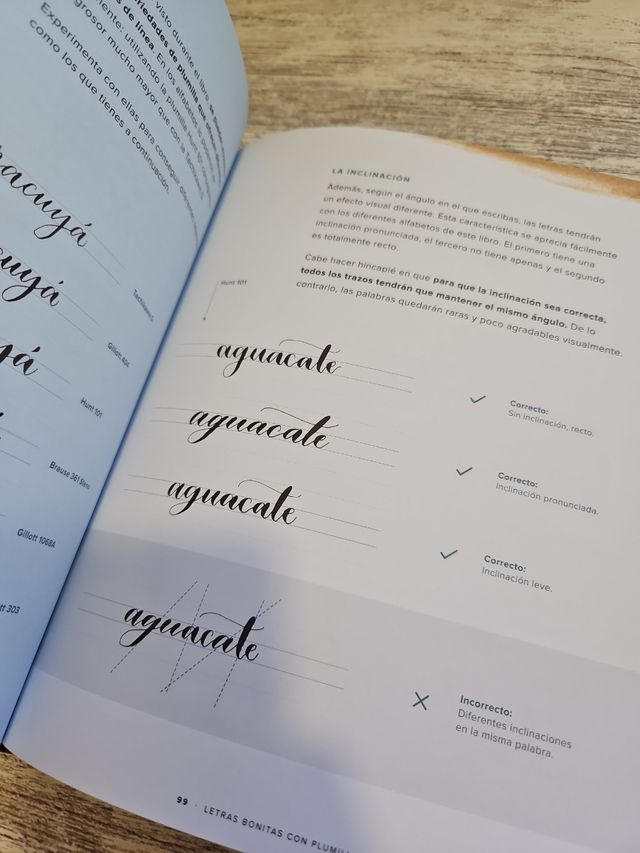 visto durante el libro, se
variedades de plumilla que
s de línea. En los alfabetos,
mente: utilizando la plumilla
grosor mucho mayor que con la
Experimenta con ellas para conseguir
como los que tienes a continuación.
racuyá
Tachikawa G
cuyá
Gillott 404
yá
Hunt 101
Brause 361 Steno
Gillott 1068A
tt 303
LA INCLINACIÓN
Además, según el ángulo en el que escribas, las letras tendrán
un efecto visual diferente. Esta característica se aprecia fácilmente
con los diferentes alfabetos de este libro. El primero tiene una
inclinación pronunciada, el tercero no tiene apenas y el segundo
es totalmente recto.
Cabe hacer hincapié en que para que la inclinación sea correcta,
todos los trazos tendrán que mantener el mismo ángulo. De lo
contrario, las palabras quedarán raras y poco agradables visualmente.
Hunt 101
aguacate
Correcto:
Sin inclinación, recto.
aguacate
Correcto:
Inclinación pronunciada.
aguacate
Correcto:
Inclinación leve.
aguacate
Incorrecto:
Diferentes inclinaciones
en la misma palabra.
99 · LETRAS BONITAS CON PLUMIL